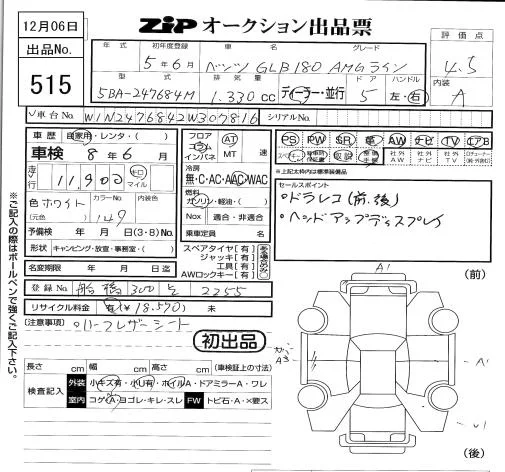 12月06日
出品No.
515
ZIP オークション出品票
年式 初年度登録 車名 グレード
5年6月 ベンツ GLB180 AMGライン
型式 排気量 ドア ハンドル
5BA-247684M 1.330cc ディーラー・並行 5 左・右
評価点
4.5
内装
A
車台No. W1N2476842W307816 シリアルNo.
車歴 自家用・レンタ・( )
車検 8年6月
走行 11,900 キロ マイル
色 ホワイト カラーNo. 149 内装色
(元色)
予備検 年 月 日(3・8)No.
形状 キャンピング・放宣・事務室・( )
名変期限 年 月 日迄
フロア コラム インパネ AT MT 速
冷房
無・C・AC・AAC・WAC
燃料
ガソリン・軽油・( )
Nox 適合・非適合
乗車定員 名
スペアタイヤ[有]
ジャッキ[有]
工具[有]
AWロックキー[有]
PS PW SR 革 AW ナビ TV エアB
社外AW 社外ナビ 社外TV
※上記太枠内は標準装備品
セールスポイント
○ドラレコ(前.後)
○ヘッドアップディスプレイ
登録No. 船橋 300 2255
リサイクル料金 有(¥18,570) 未
(注意事項) ○ハーフレザーシート
初出品
長さ cm 幅 cm 高さ cm (車検証上の寸法)
検査記入 外装 小キズ有・小U有・ホイルA・ドアミラーA・ワレ
室内 コゲA・ヨゴレ・キレ・スレ FW トビ石・A・×要ス
(前)
A1
A3
A1
U1
(後)
※ご記入の際はボールペンで強くご記入下さい。